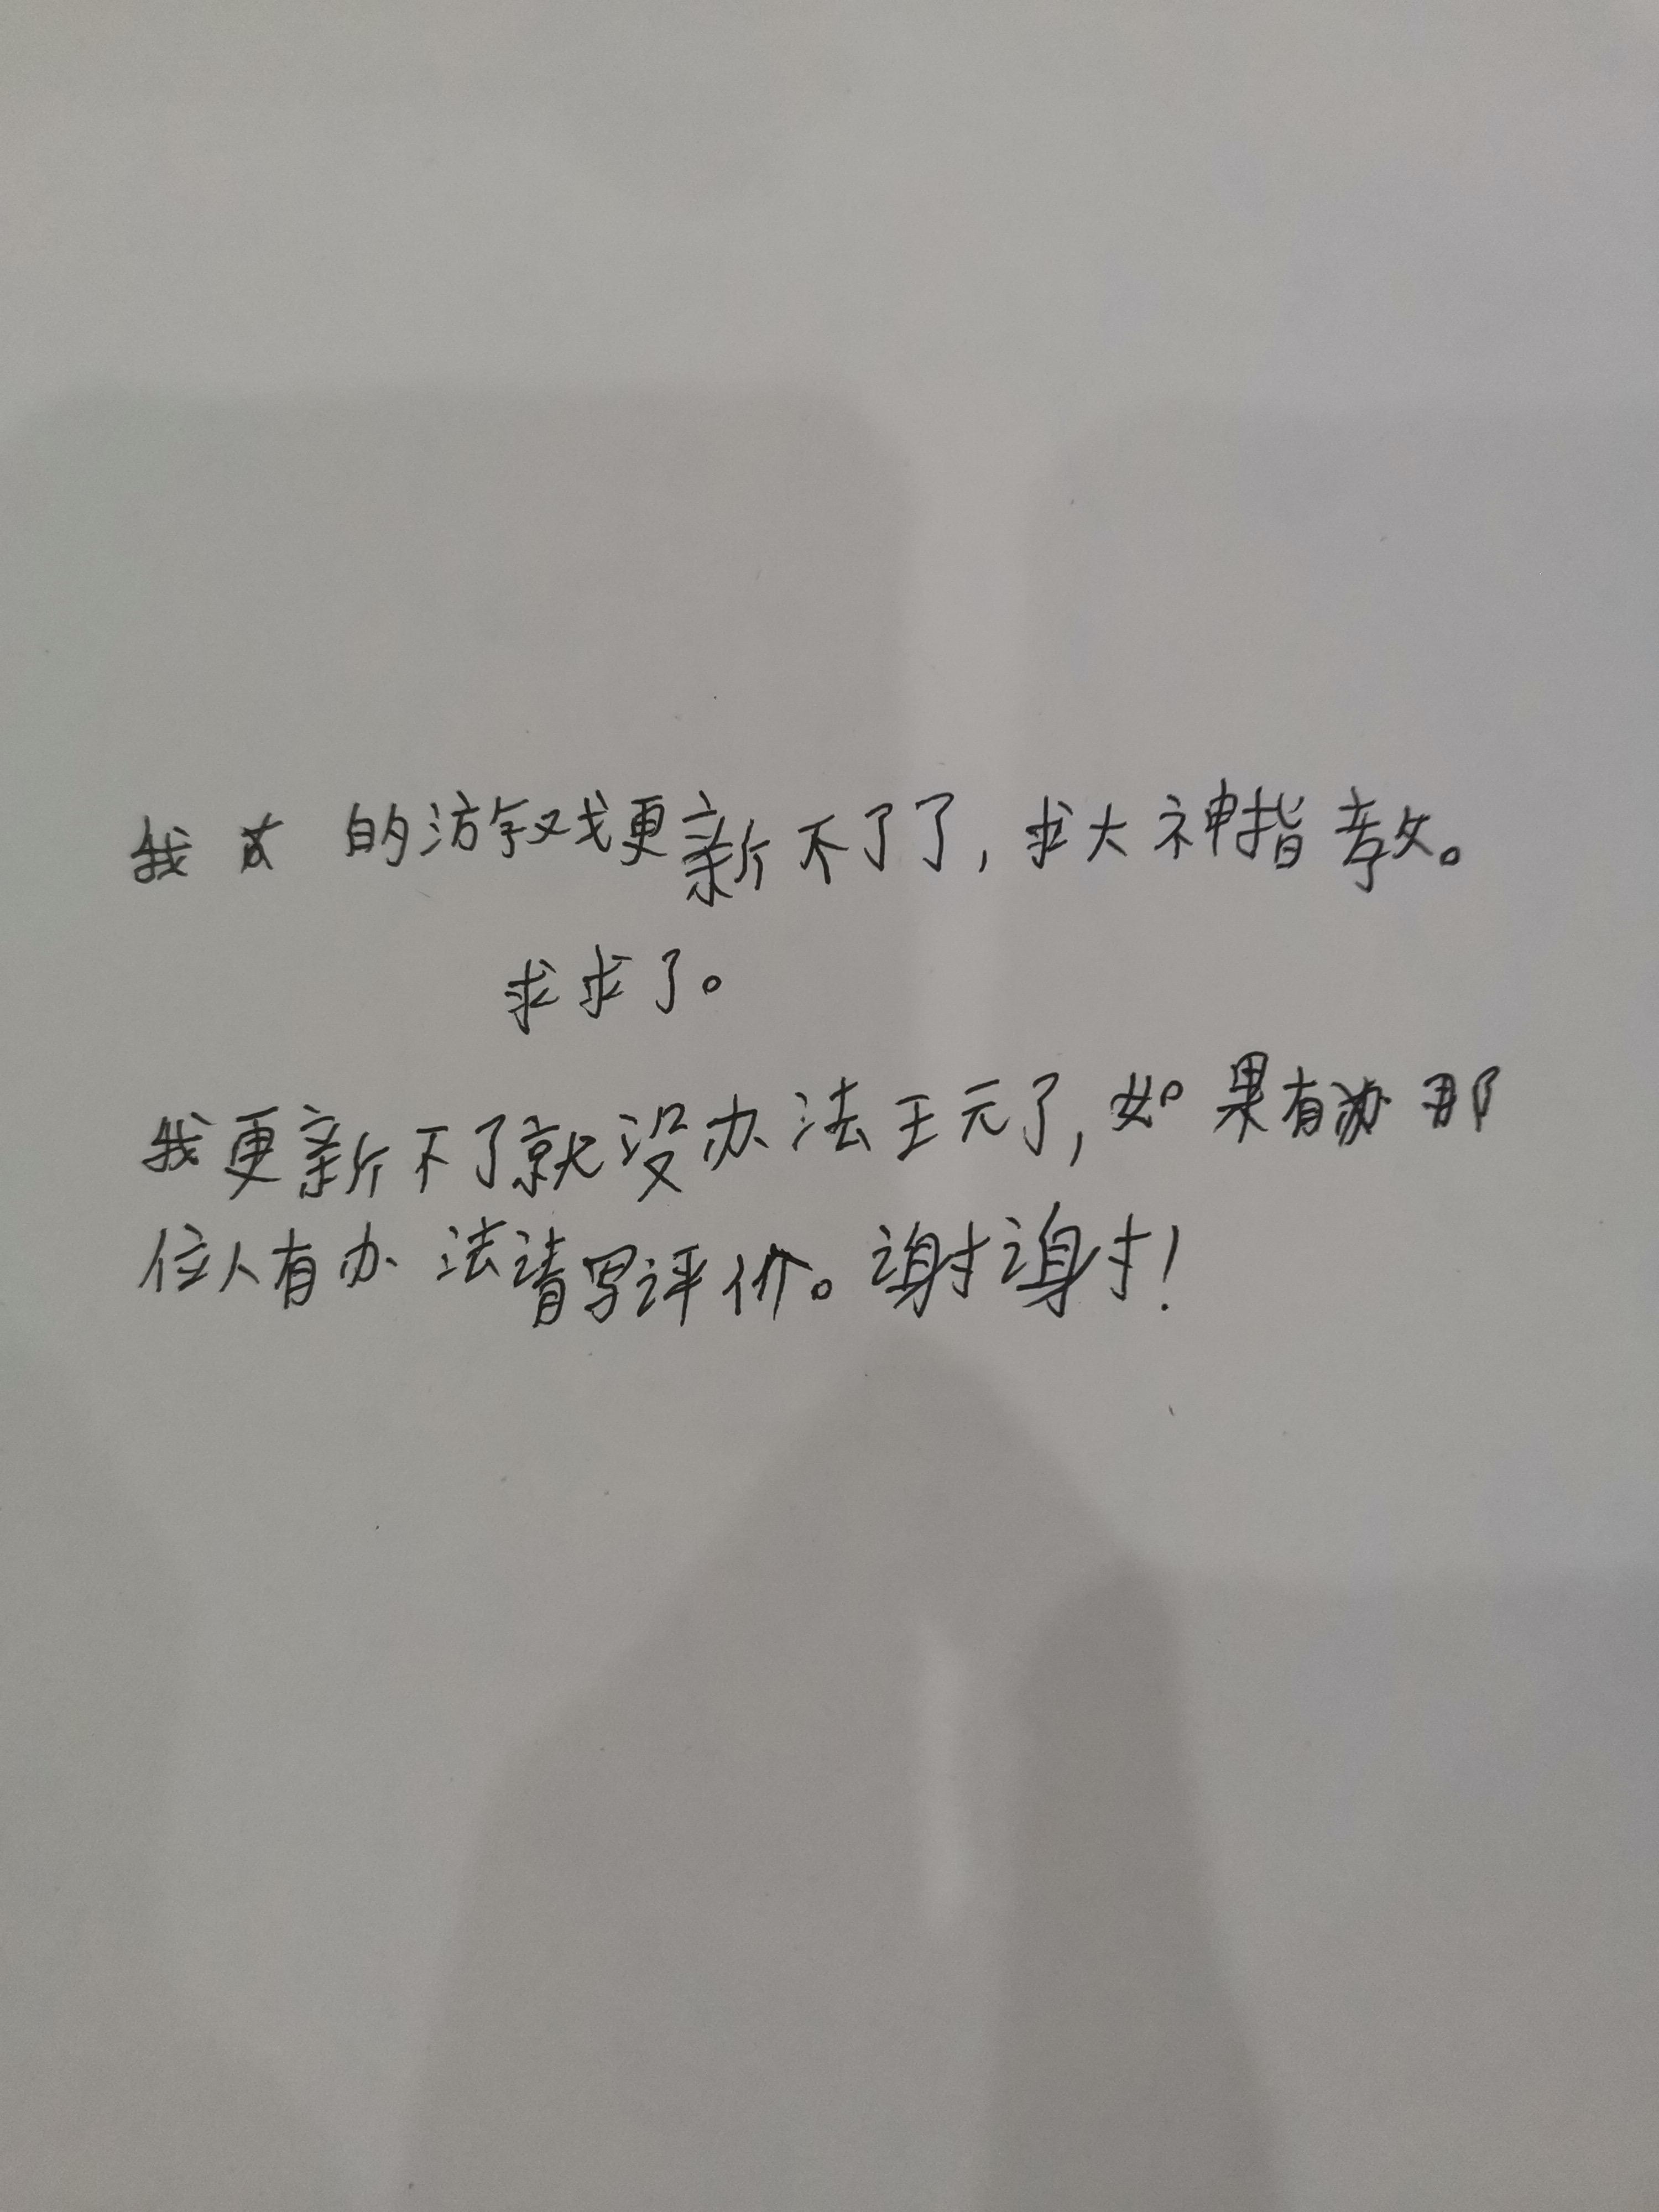 我的游戏更新不了了,求大神指教。
求求了。
我更新不了就没办法王元了,如果有那
位人有办法请写评价。谢谢!